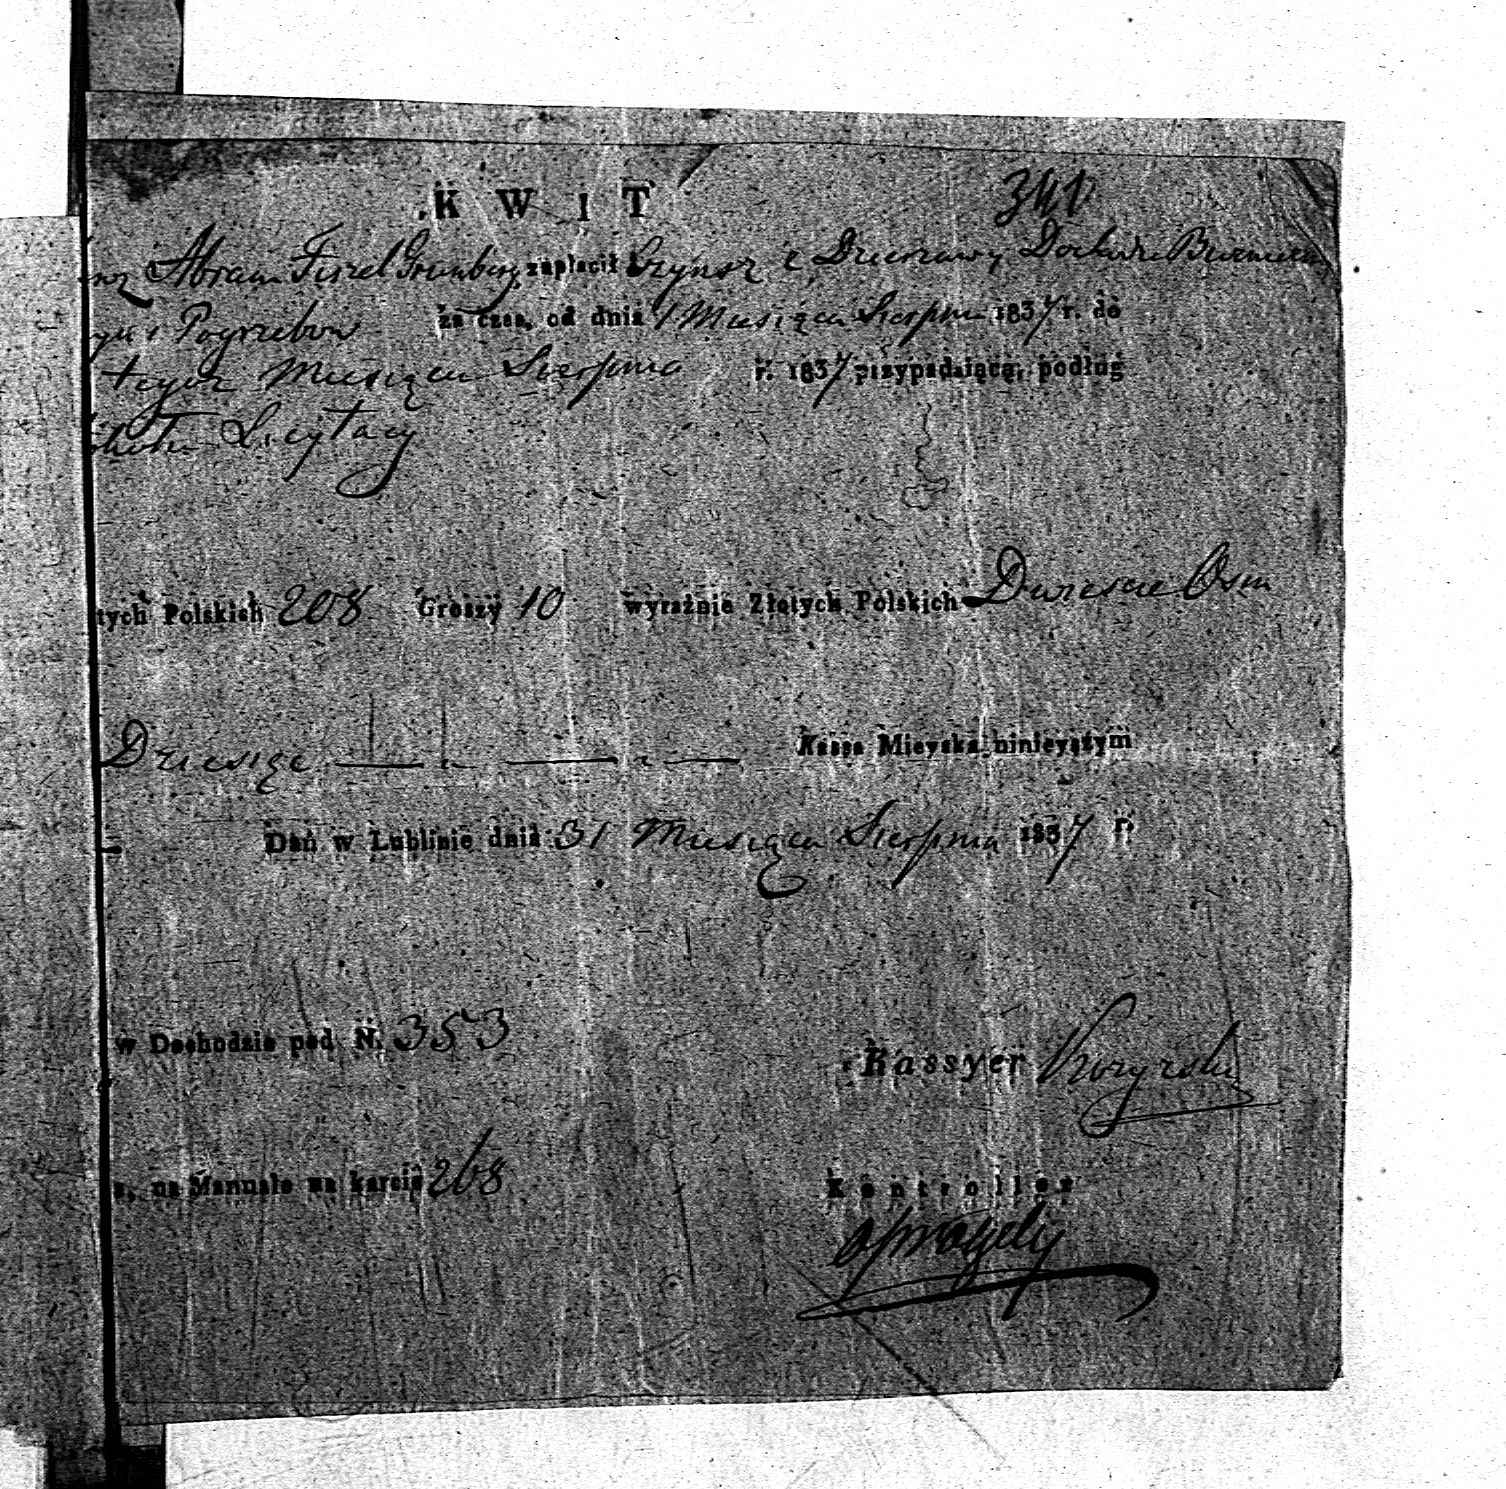 341
K W I T
Abram Fiszel Grunberg zapłacił Czynsz z Dzierzawy Dochodu
i Pogrzebow za czas, od dnia 1 Miesiąca Sierpnia 1837 r. do
tegoz Miesiąca Sierpnia r. 1837 przypadaiącą, podług
Licytacy
tych Polskich 208 Groszy 10 wyraźnie Złotych Polskich Dwiescie Osm
Dziesięc Kassa Mieyska ninieyszym
Dań w Lublinie dnia 31 Miesiąca Sierpnia 1837 r.
w Dochodzie pod N. 353
Kassyer
na Manuale na karcie 268
Kontroller